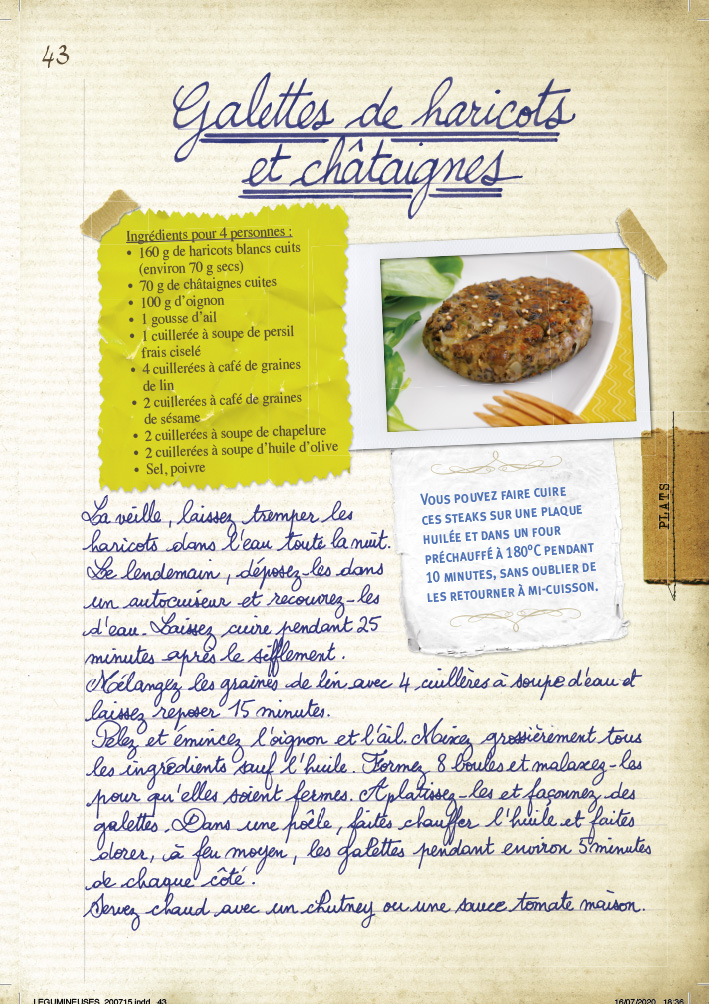 43
Galettes de haricots
et châtaignes
Ingrédients pour 4 personnes :
• 160 g de haricots blancs cuits
(environ 70 g secs)
• 70 g de châtaignes cuites
• 100 g d'oignon
• 1 gousse d'ail
• 1 cuillerée à soupe de persil
frais ciselé
• 4 cuillerées à café de graines
de lin
• 2 cuillerées à café de graines
de sésame
• 2 cuillerées à soupe de chapelure
• 2 cuillerées à soupe d'huile d'olive
• Sel, poivre
VOUS POUVEZ FAIRE CUIRE
CES STEAKS SUR UNE PLAQUE
HUILÉE ET DANS UN FOUR
PRÉCHAUFFÉ À 180°C PENDANT
10 MINUTES, SANS OUBLIER DE
LES RETOURNER À MI-CUISSON.
PLATS
La veille, laissez tremper les
haricots dans l'eau toute la nuit.
Le lendemain, déposez-les dans
un autocuiseur et recouvrez-les
d'eau. Laissez cuire pendant 25
minutes après le sifflement.
Mélangez les graines de lin avec 4 cuillères à soupe d'eau et
laissez reposer 15 minutes.
Pelez et émincez l'oignon et l'ail. Mixez grossièrement tous
les ingrédients sauf l'huile. Formez 8 boules et malaxez-les
pour qu'elles soient fermes. Aplatissez-les et façonnez des
galettes. Dans une poêle, faites chauffer l'huile et faites
dorer, à feu moyen, les galettes pendant environ 5 minutes
de chaque côté.
Servez chaud avec un chutney ou une sauce tomate maison.
LEGUMINEUSES_200715.indd 43
16/07/2020 18:36